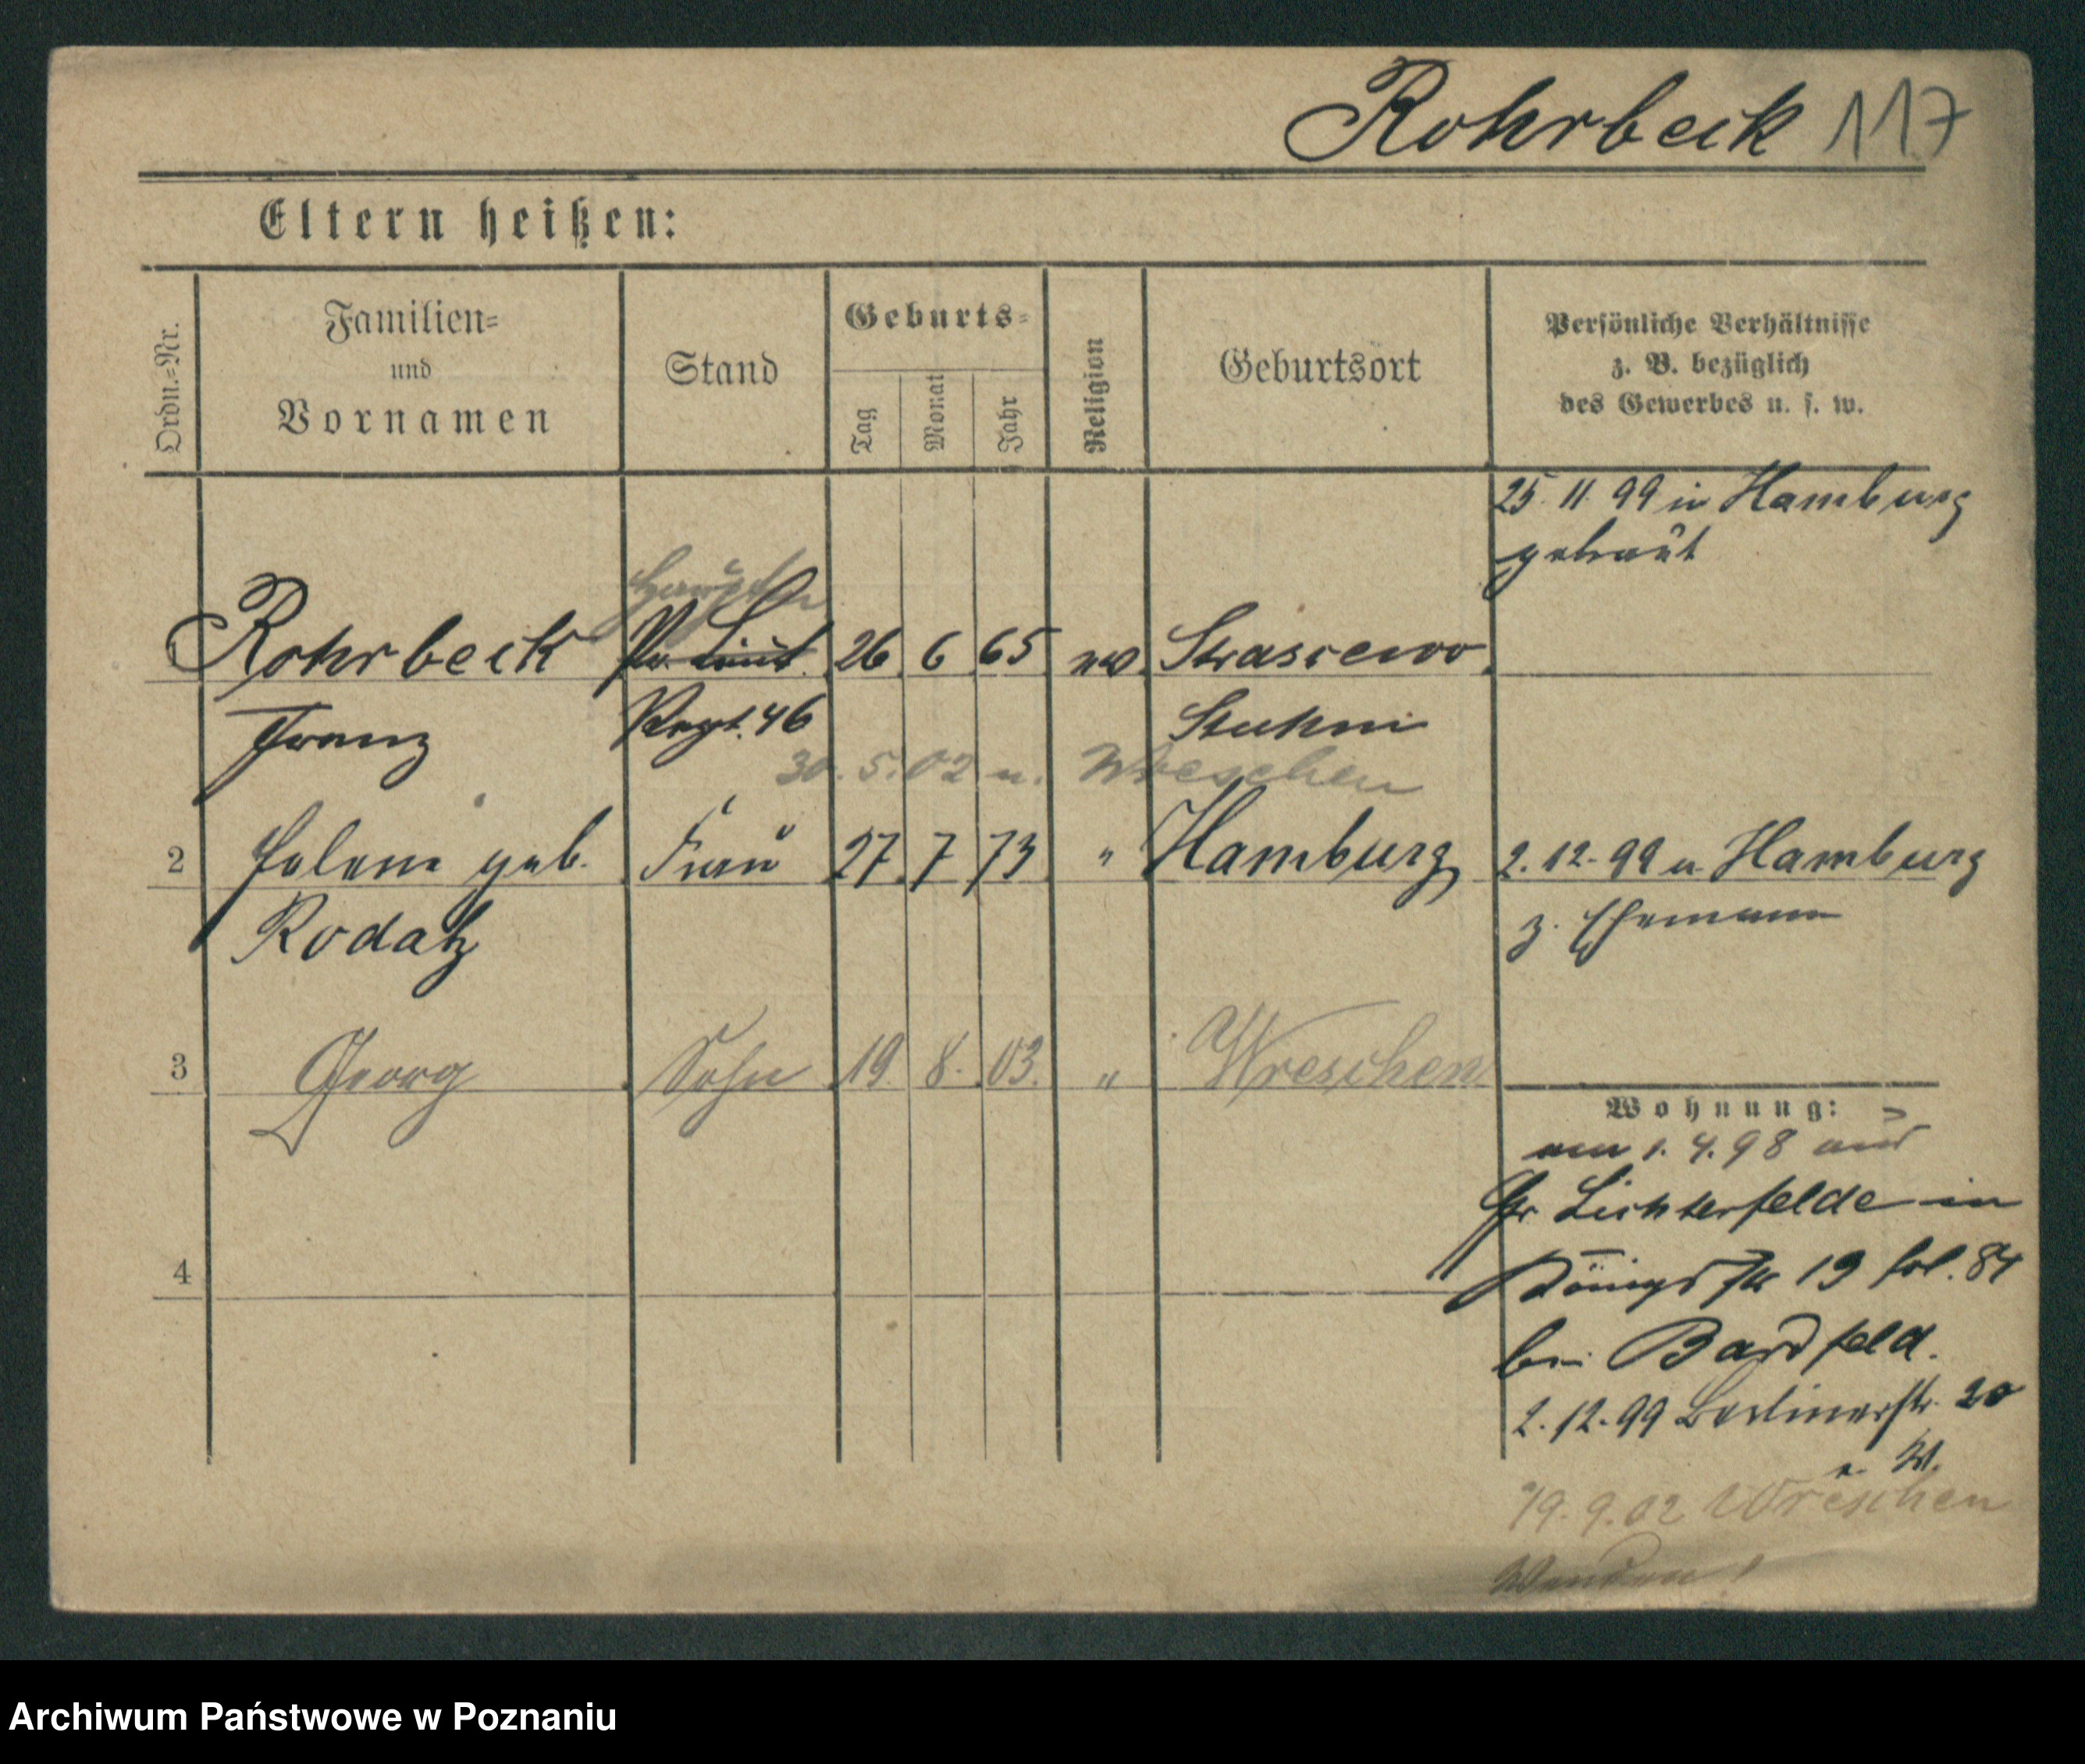 Rohrbeck 117
Eltern heißen:
Ordn.=Nr.
Familien=
und
Vornamen
Stand
Geburts=
Tag
Monat
Jahr
Religion
Geburtsort
Persönliche Verhältnisse
z. B. bezüglich
des Gewerbes u. s. w.
25. 11. 99 in Hamburg
getraut
Hauptm
Rohrbeck Pr. Lieut. 26 6 65 ev Straszewo
Franz Regt. 46 Stuhm
30. 5. 02 n. Wreschen
2 Helene geb. Frau 27 7 73 " Hamburg 2. 12. 99 v. Hamburg
Rodatz z. Ehemann
3 Georg Sohn 19. 8. 03. " Wreschen
Wohnung:
am 1. 4. 98 aus
Gr Lichterfelde in
Königsstr 19 fol. 84
bei Bardfeld.
2. 12. 99 Berlinerstr. 20
19. 9. 02 Wreschen
4
Wenden!